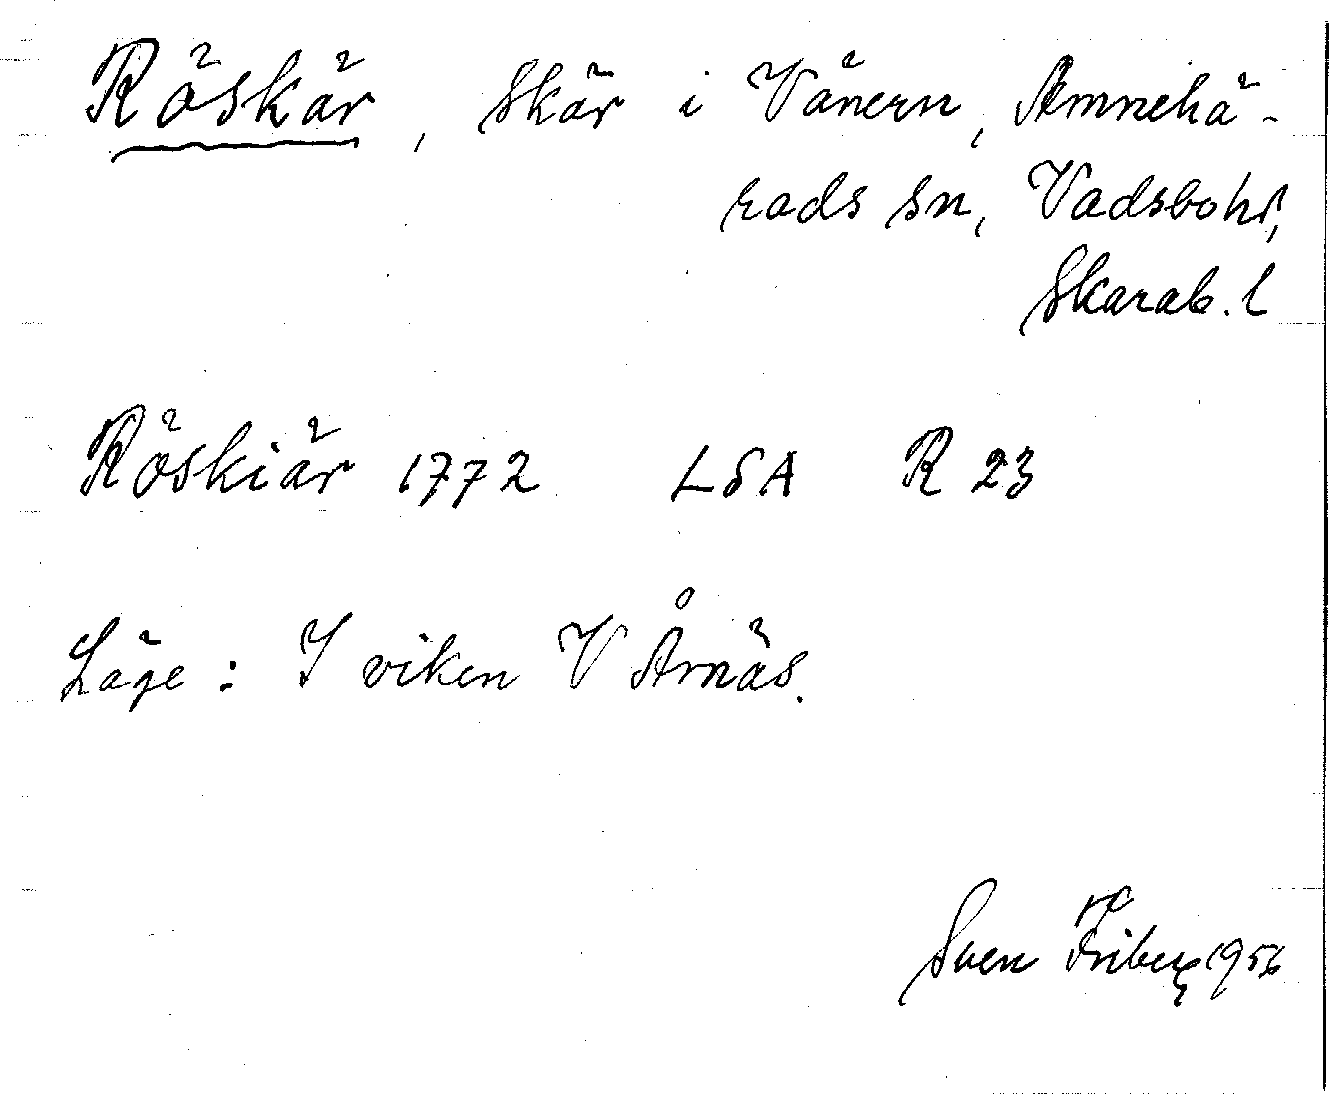 Röskär, skär i Vänern, Amnehä-
rads sn, Vadsbohd,
Skarab. l
Röskiär 1772 LSA R 23
Läge: I viken V Årnäs.
Sven Friberg 1956